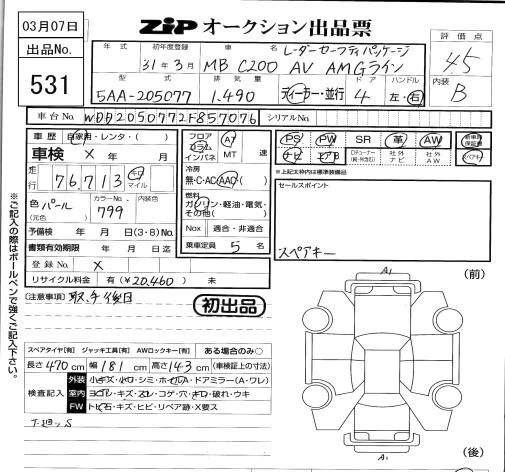 03月07日
ZIP オークション出品票
出品No.
531
年式 初年度登録 車名
31年3月 MB C200 AV AMGライン
レーダーセーフティパッケージ
評価点
4.5
型式 排気量 ドア ハンドル
5AA-205077 1.490 ディーラー・並行 4 左・右
内装
B
車台No. WDD2050772F857076 シリアルNo.
車歴 自家用・レンタ・( )
車検 × 年 月
走行 76,713 キロ マイル
色 パール カラーNo. 799 内装色
(元色)
予備検 年 月 日(3・8)No.
書類有効期限 年 月 日迄
登録No. ×
リサイクル料金 有(¥20,460) 未
フロア コラム インパネ A7 MT 速
冷房
無・C・AC・AAC( )
燃料
ガソリン・軽油・電気・
その他( )
Nox 適合・非適合
乗車定員 5 名
PS PW SR 革 AW 新車時保証書
ナビ エアB 社外ナビ 社外AW スペアキー
※上記太枠内は標準装備品
セールスポイント
スペアキー
[注意事項] 取、ナビ後日
初出品
スペアタイヤ[有] ジャッキ工具[有] AWロックキー[有] ある場合のみ○
長さ 470 cm 幅 181 cm 高さ 143 cm (車検証上の寸法)
検査記入
外装 小キズ・小凹・シミ・ホイルA・ドアミラー(A・ワレ)
室内 ヨゴレ・キズ・スレ・コゲ・穴・キロ・破れ・ウキ
FW トビ石・キズ・ヒビ・リペア跡・X要ス
下廻りS
A1
(前)
A1
(後)
※ご記入の際はボールペンで強くご記入下さい。